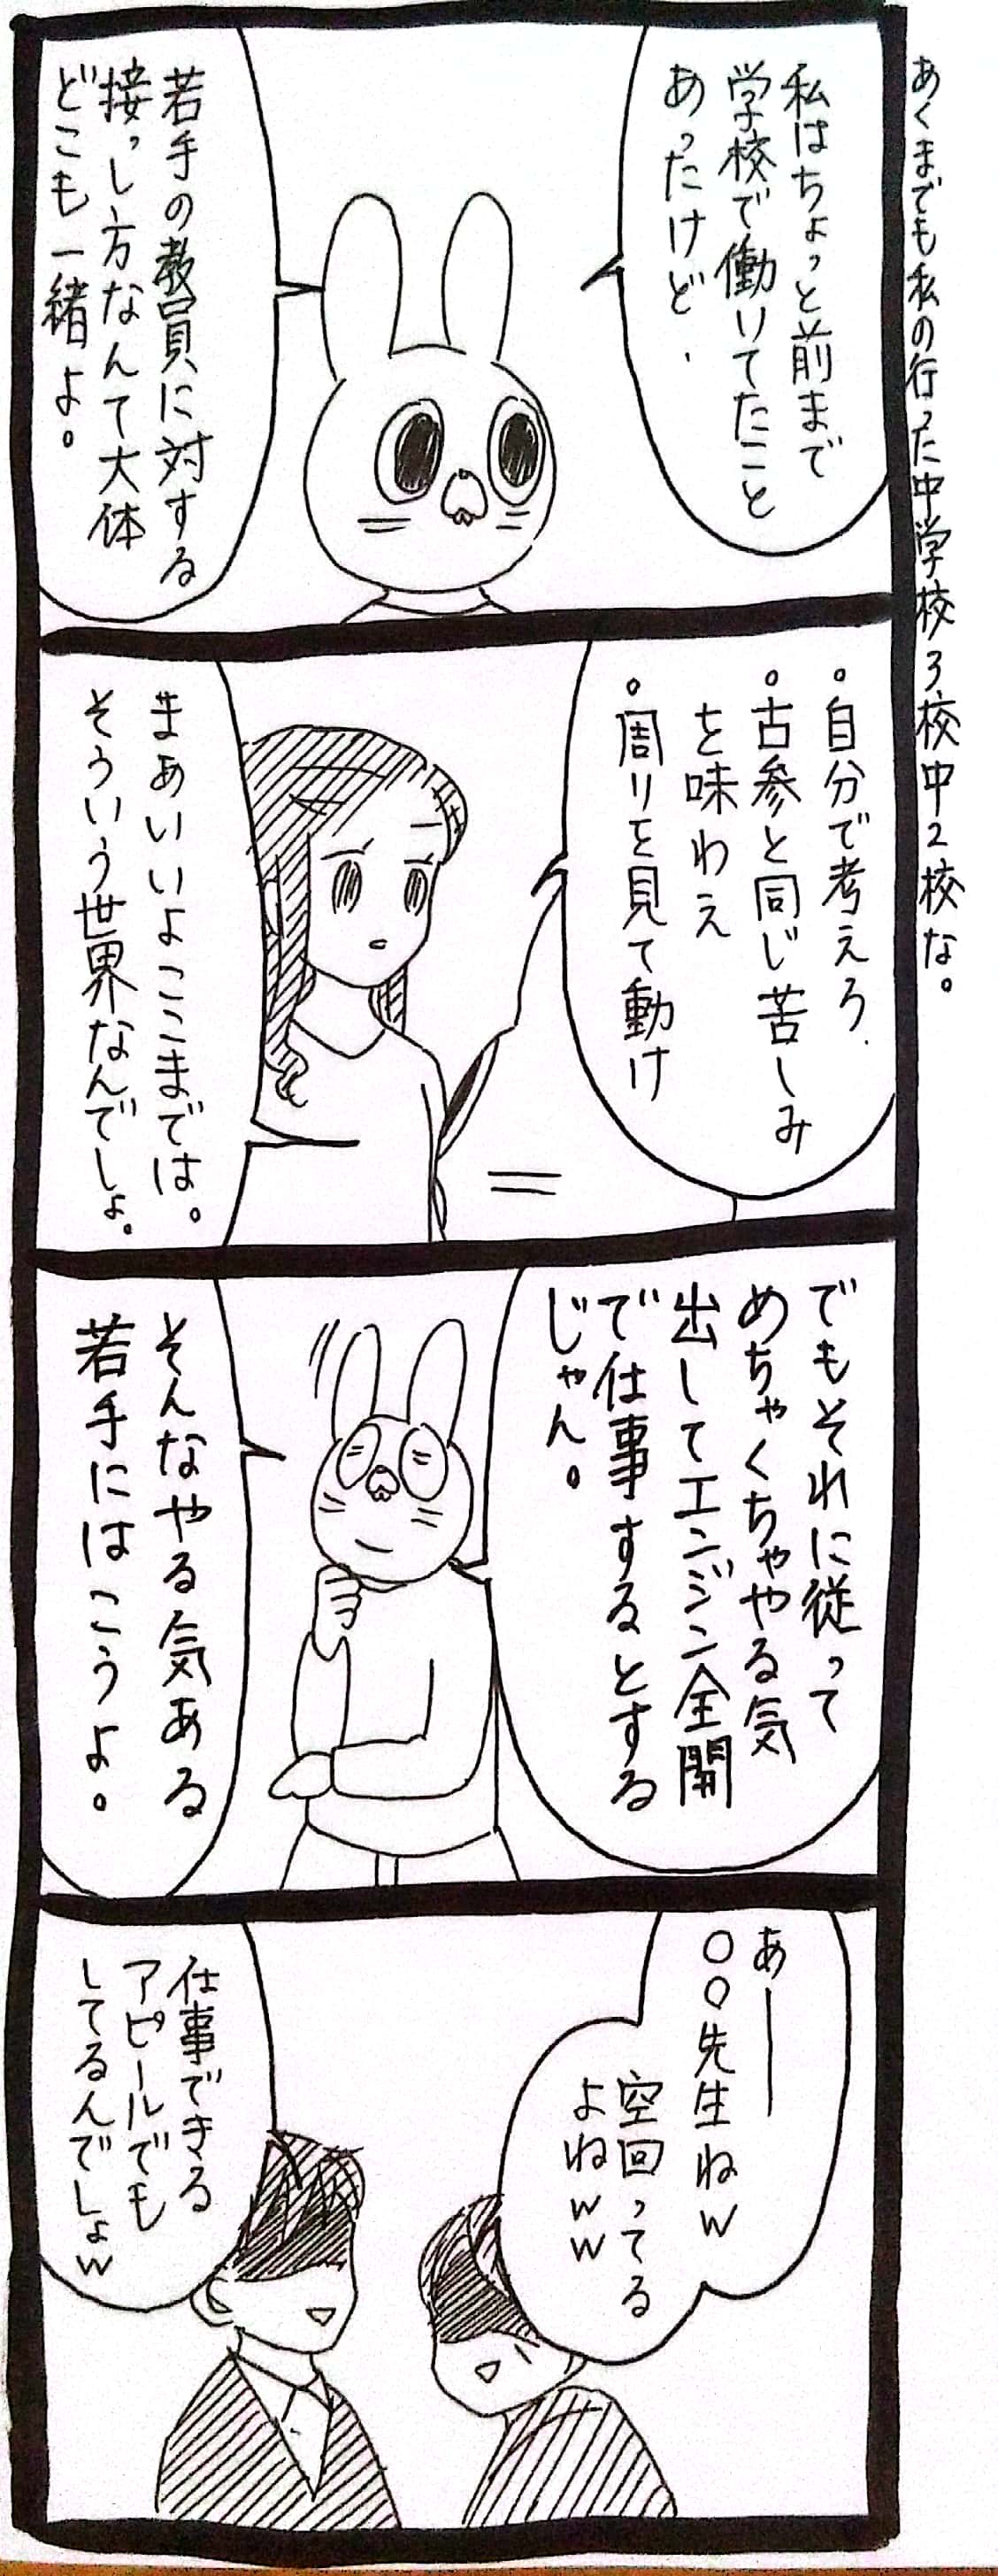 あくまでも私の行った中学校3校中2校な。
私はちょっと前まで
学校で働いてたこと
あったけど、
若手の教員に対する
接っし方なんて大体
どこも一緒よ。
。自分で考えろ、
。古参と同じ苦しみ
を味わえ
。周りを見て動け
まあいいよここまでは。
そういう世界なんでしょ。
でもそれに従って
めちゃくちゃやる気
出してエンジン全開
で仕事するとする
じゃん。
そんなやる気ある
若手にはこうよ。
あー
〇〇先生ねw
空回ってる
よねww
仕事できる
アピールでも
してるんでしょw